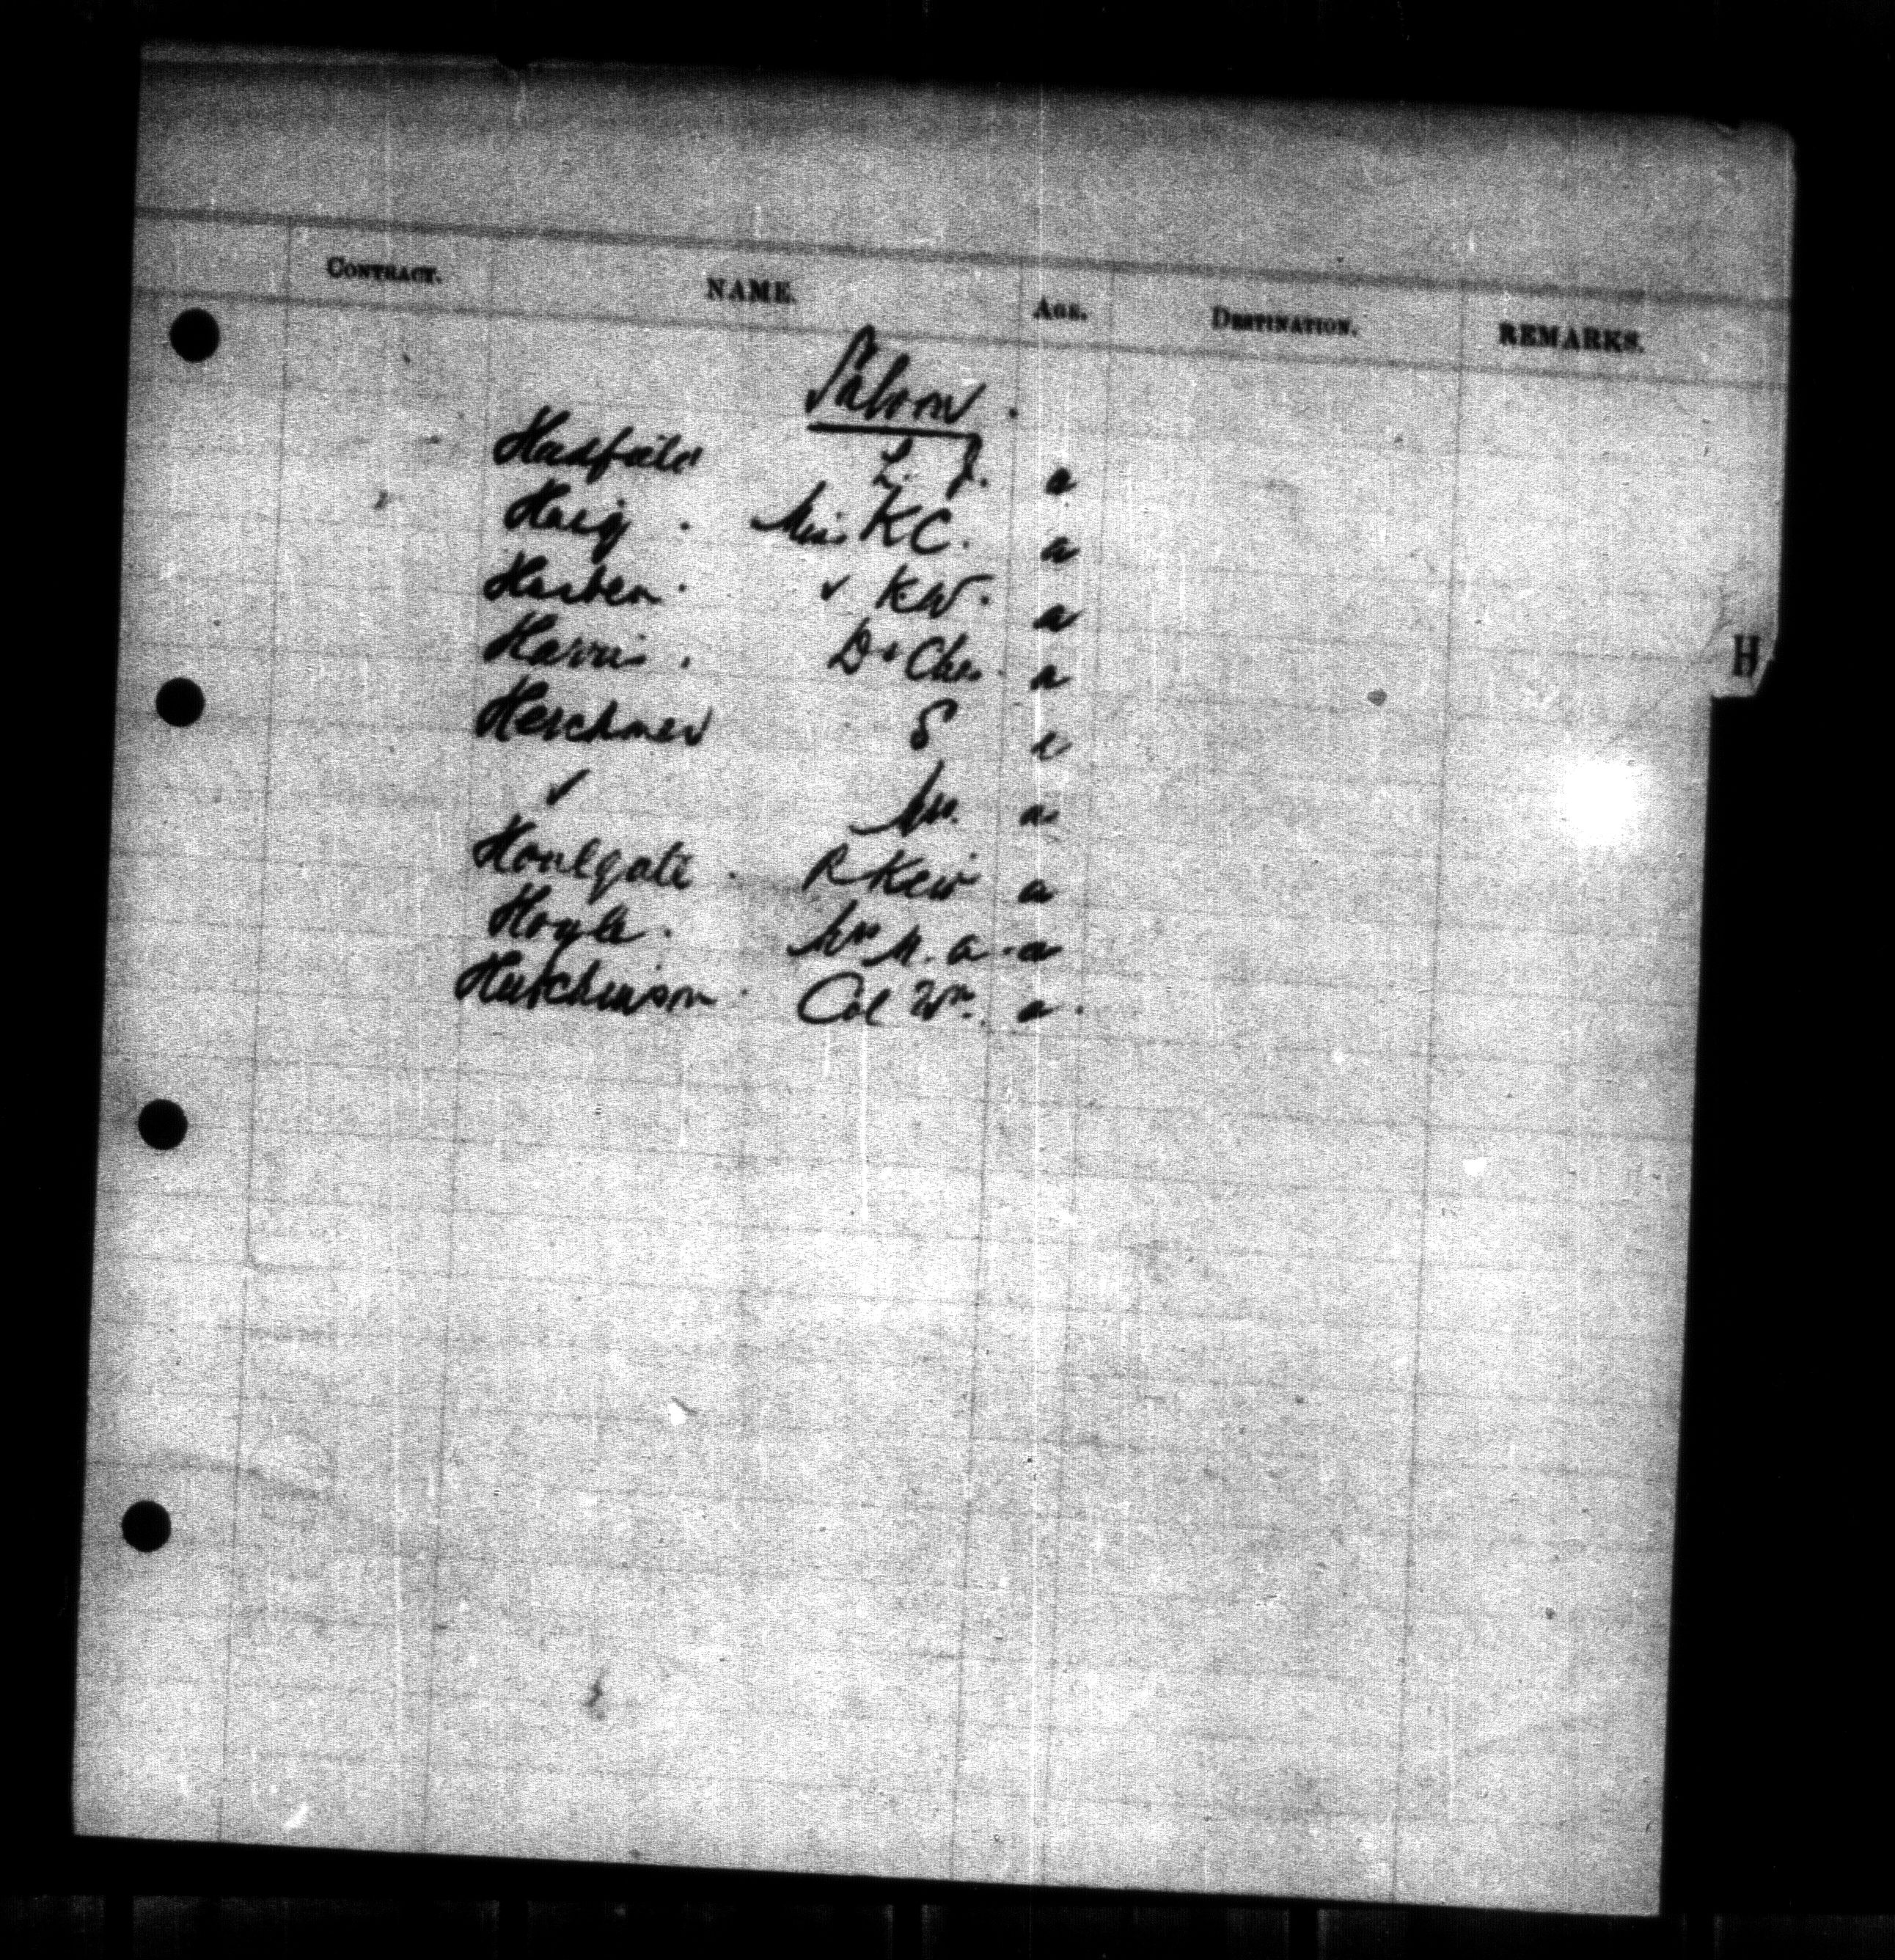 CONTRACT. NAME. AGE. DESTINATION. REMARKS.
Saloon.
Hadfield L. J. a
Haig. Miss KC. a
Harben. ✓ KW. a
Harris. Dr Chas. a
Herchmer S a
✓ Mrs. a
Houlgate. R Kerr a
Hoyle. Mrs N. a. a
Hutchinson. Col Wm. a.
H